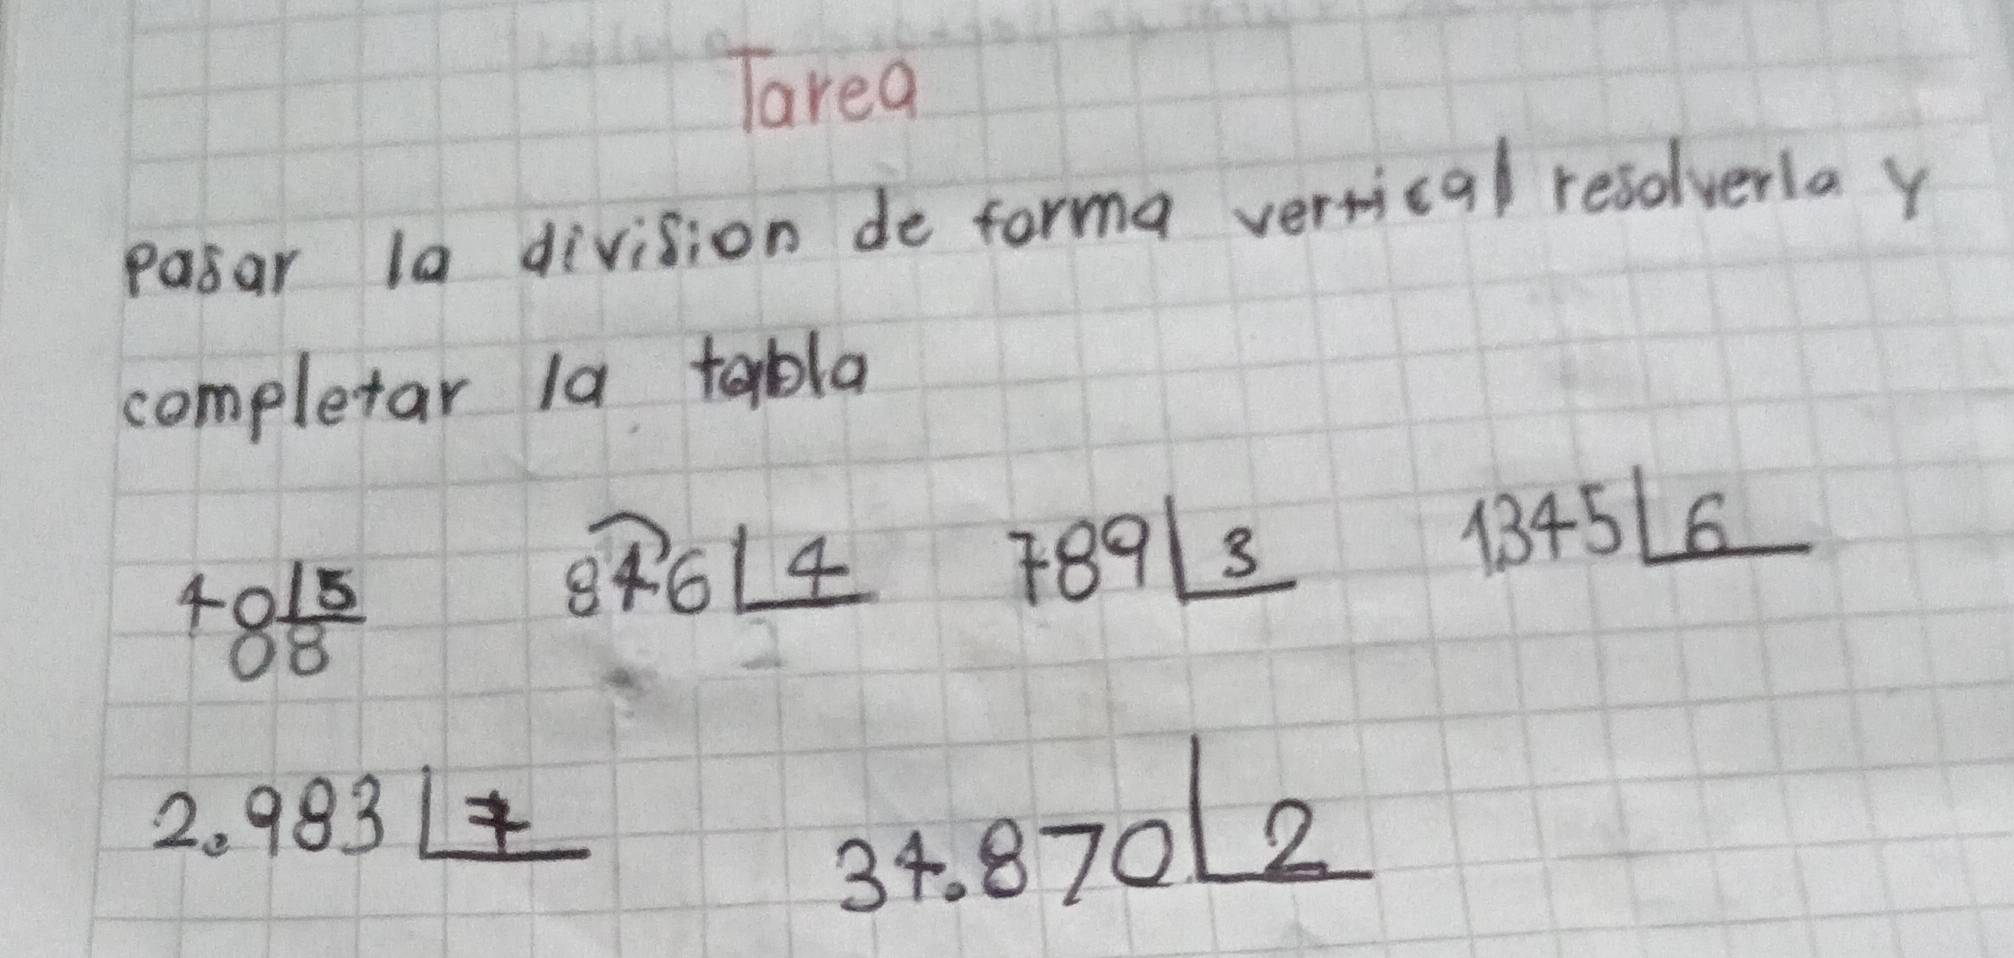 Tarea
pasar la division de forma vertical resolverla y
completar la tabla
40 5 846 4 789 3 1345 6
08
2.983 7 34.870 2